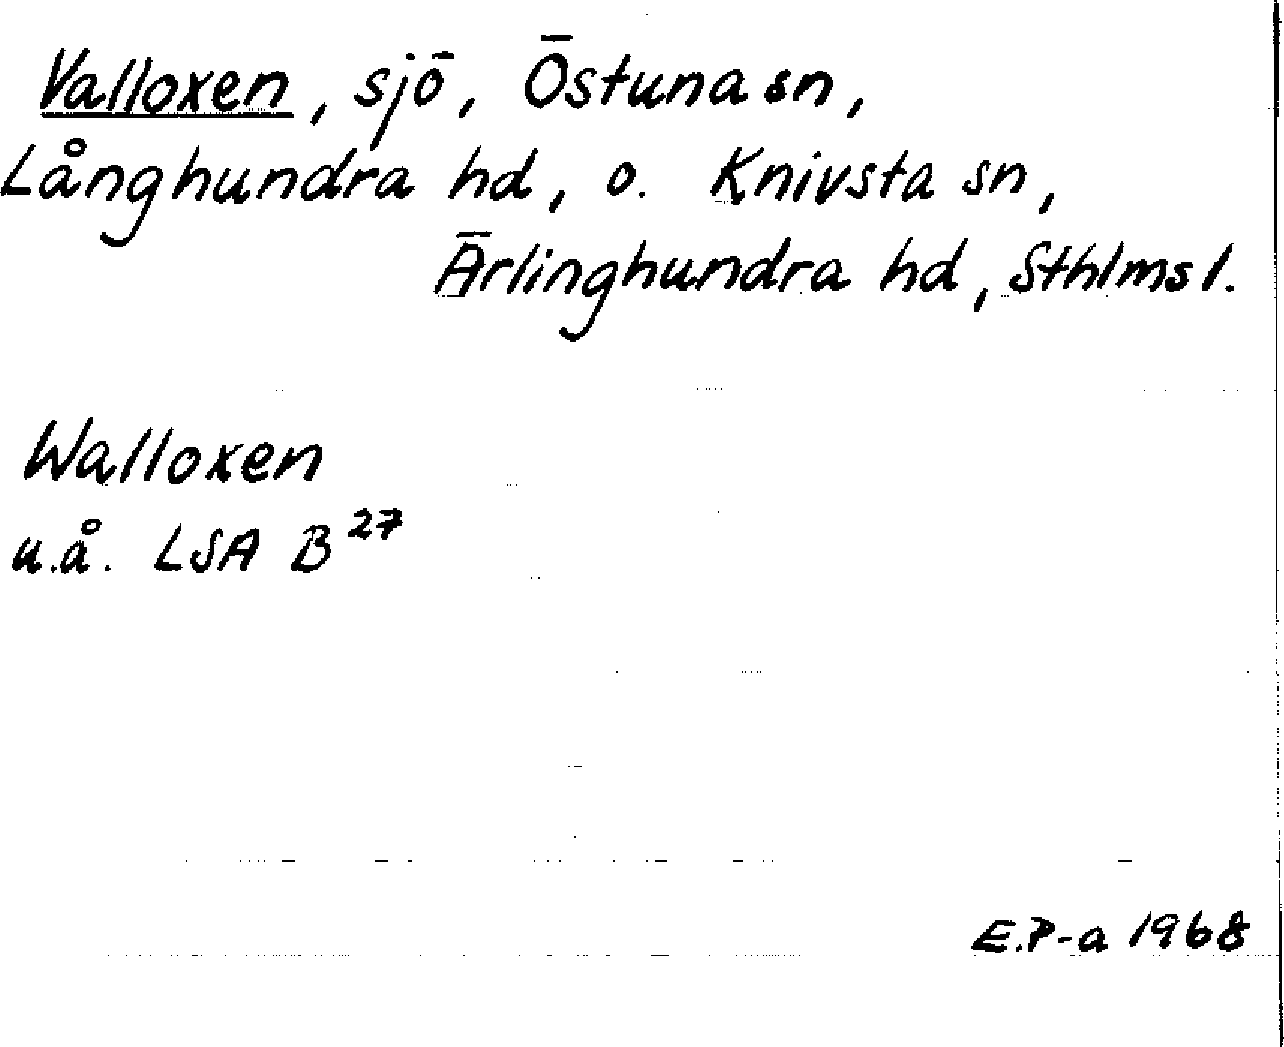 Valloxen, sjö, Östuna sn,
Långhundra hd, o. Knivsta sn,
Ärlinghundra hd, Sthlms l.
Walloxen
u.å. LSA B 27
E.P-a 1968